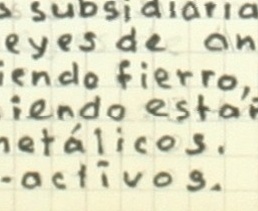 s subsidiaria
eyes de an
iendo fierro,
iendo estañ
metálicos.
-activos.